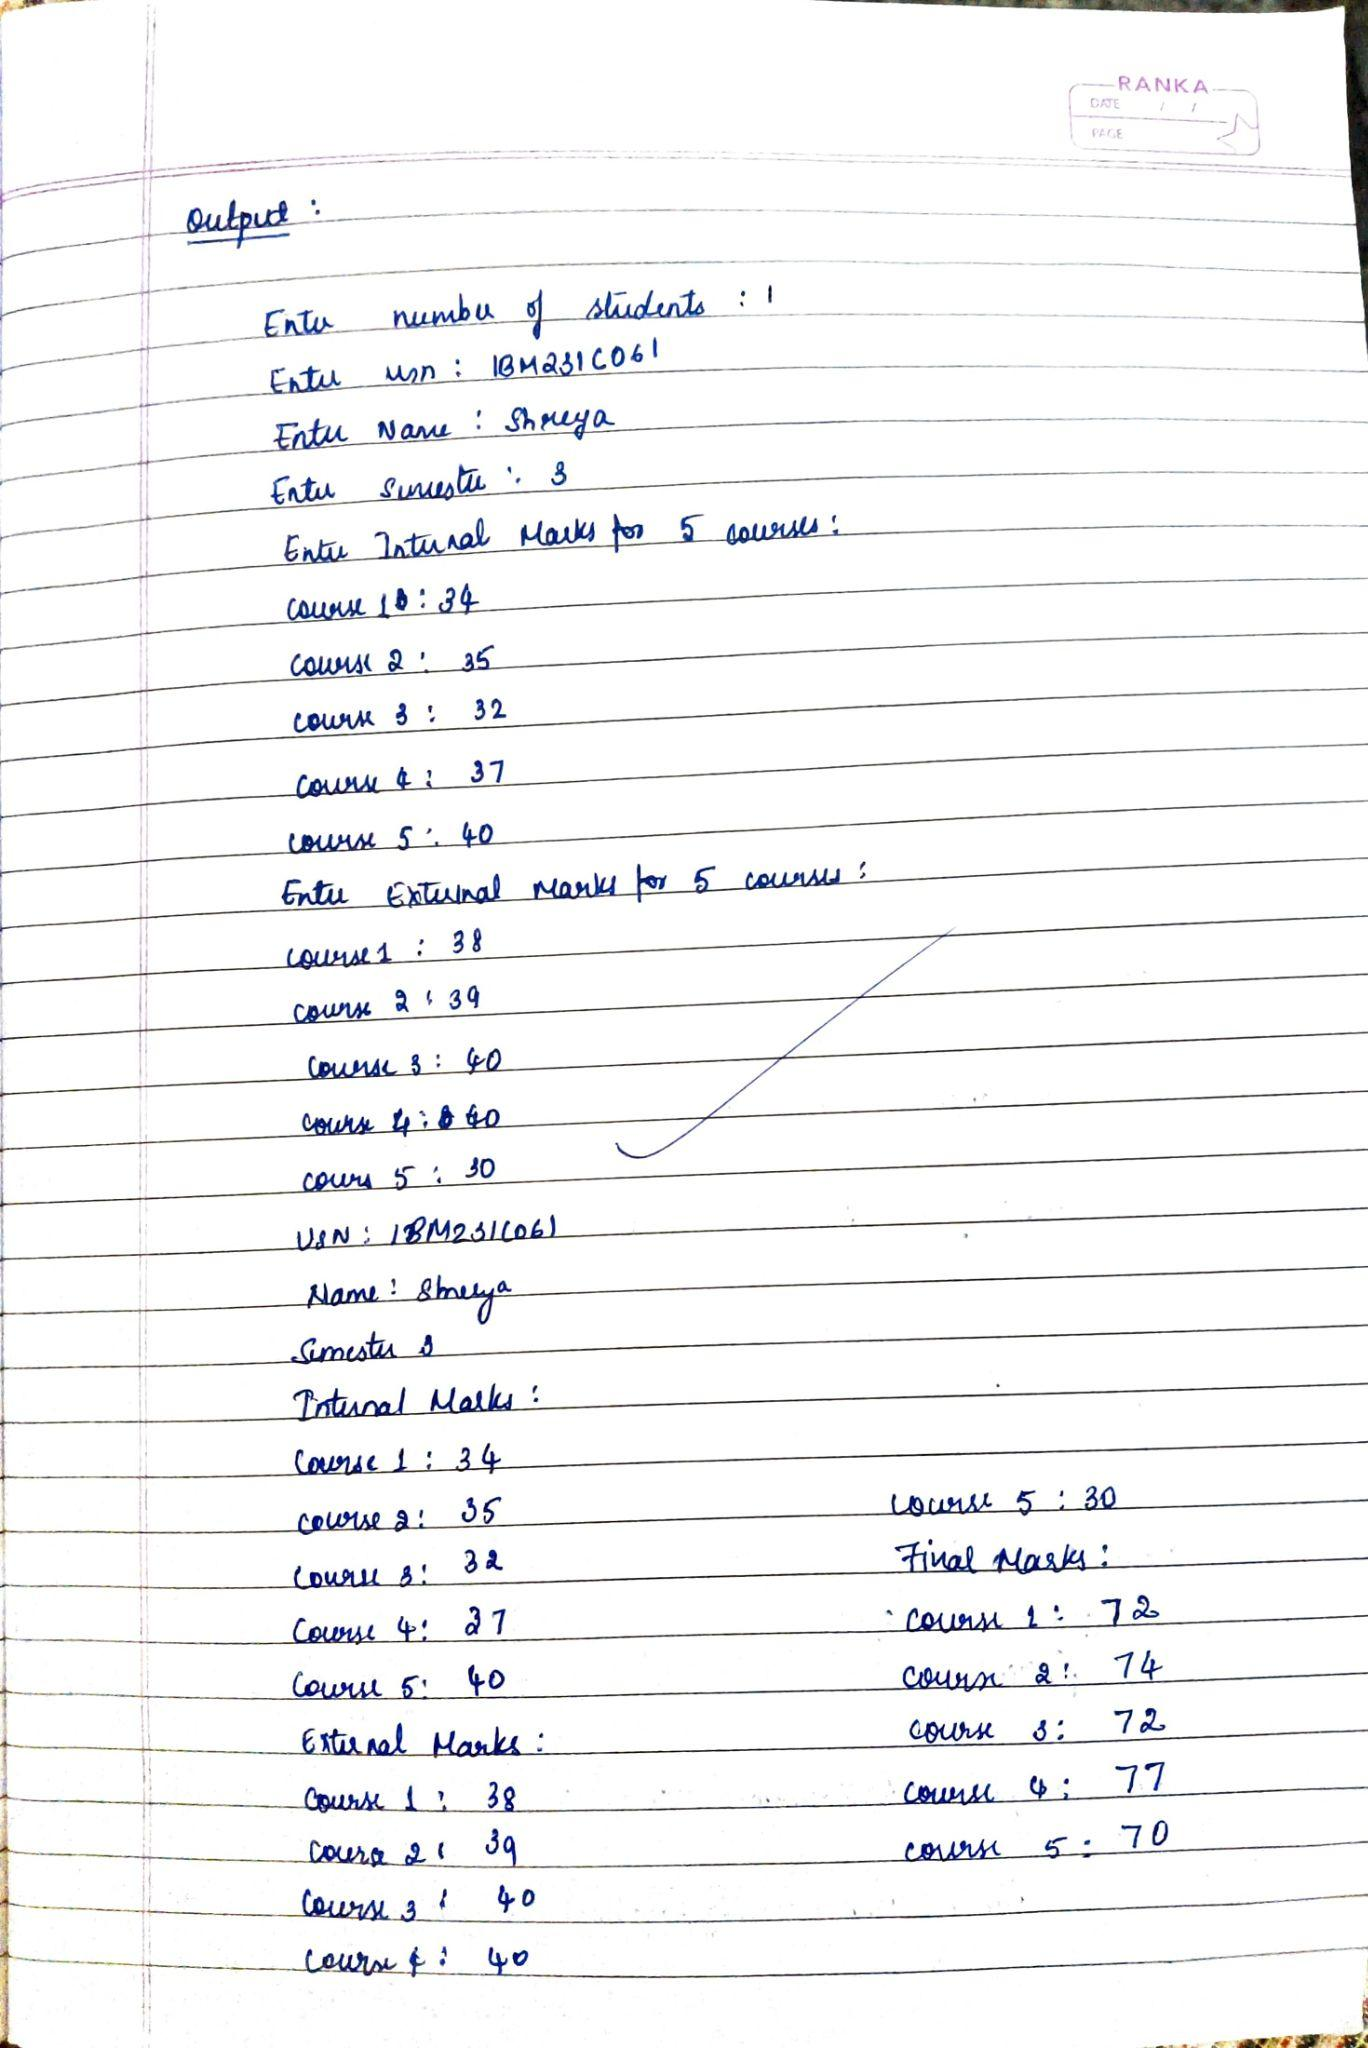 RANKA
DATE / /
PAGE
Output :
Enter number of students : 1
Enter usn : 1BM23IC061
Enter Name : Shreya
Enter Semester : 3
Enter Internal Marks for 5 courses :
Course 1 : 34
Course 2 : 35
Course 3 : 32
Course 4 : 37
Course 5 : 40
Enter External Marks for 5 courses :
Course 1 : 38
Course 2 : 39
Course 3 : 40
Course 4 : 40
Cours 5 : 30
USN : 1BM23IC061
Name : Shreya
Semester 3
Internal Marks :
Course 1 : 34
Course 2 : 35
Course 3 : 32
Course 4 : 37
Course 5 : 40
External Marks :
Course 1 : 38
Course 2 : 39
Course 3 : 40
Course 4 : 40
Course 5 : 30
Final Marks :
Course 1 : 72
Course 2 : 74
Course 3 : 72
Course 4 : 77
Course 5 : 70